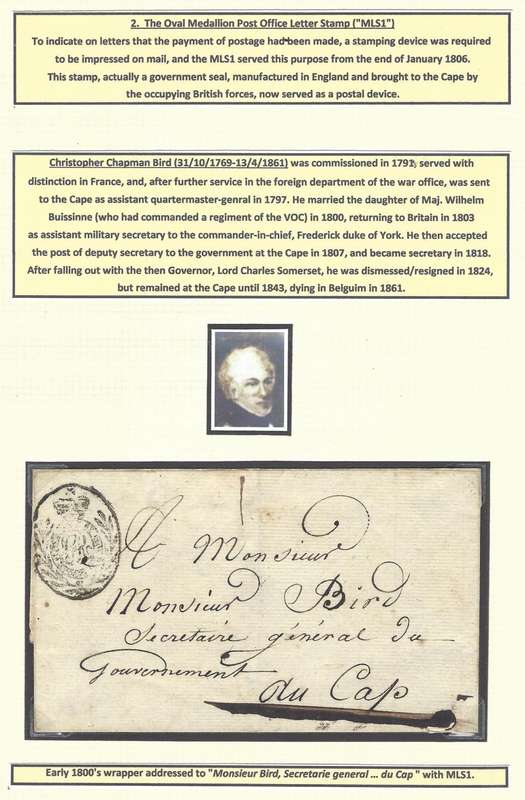 2. The Oval Medallion Post Office Letter Stamp ("MLS1")
To indicate on letters that the payment of postage had been made, a stamping device was required
to be impressed on mail, and the MLS1 served this purpose from the end of January 1806.
This stamp, actually a government seal, manufactured in England and brought to the Cape by
the occupying British forces, now served as a postal device.
Christopher Chapman Bird (31/10/1769-13/4/1861) was commissioned in 1791, served with
distinction in France, and, after further service in the foreign department of the war office, was sent
to the Cape as assistant quartermaster-genral in 1797. He married the daughter of Maj. Wilhelm
Buissinne (who had commanded a regiment of the VOC) in 1800, returning to Britain in 1803
as assistant military secretary to the commander-in-chief, Frederick duke of York. He then accepted
the post of deputy secretary to the government at the Cape in 1807, and became secretary in 1818.
After falling out with the then Governor, Lord Charles Somerset, he was dismessed/resigned in 1824,
but remained at the Cape until 1843, dying in Belguim in 1861.
A Monsieur
Monsieur Bird
Secretaire général du
Gouvernement
du Cap
Early 1800's wrapper addressed to "Monsieur Bird, Secretarie general ... du Cap " with MLS1.